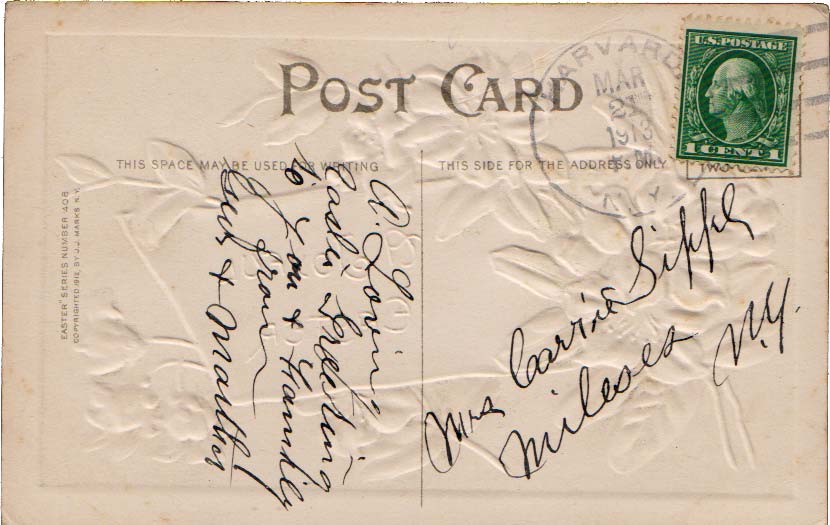 POST CARD
THIS SPACE MAY BE USED FOR WRITING
THIS SIDE FOR THE ADDRESS ONLY
EASTER" SERIES NUMBER 408
COPYRIGHTED 1912, BY J.J. MARKS N.Y.
HARVARD
MAR
1913
N.Y.
U.S. POSTAGE
1 CENT 1
A Loving
Easter Greeting
to you & Family
from
& Mother
Mrs Carrie Sipple
N.Y.